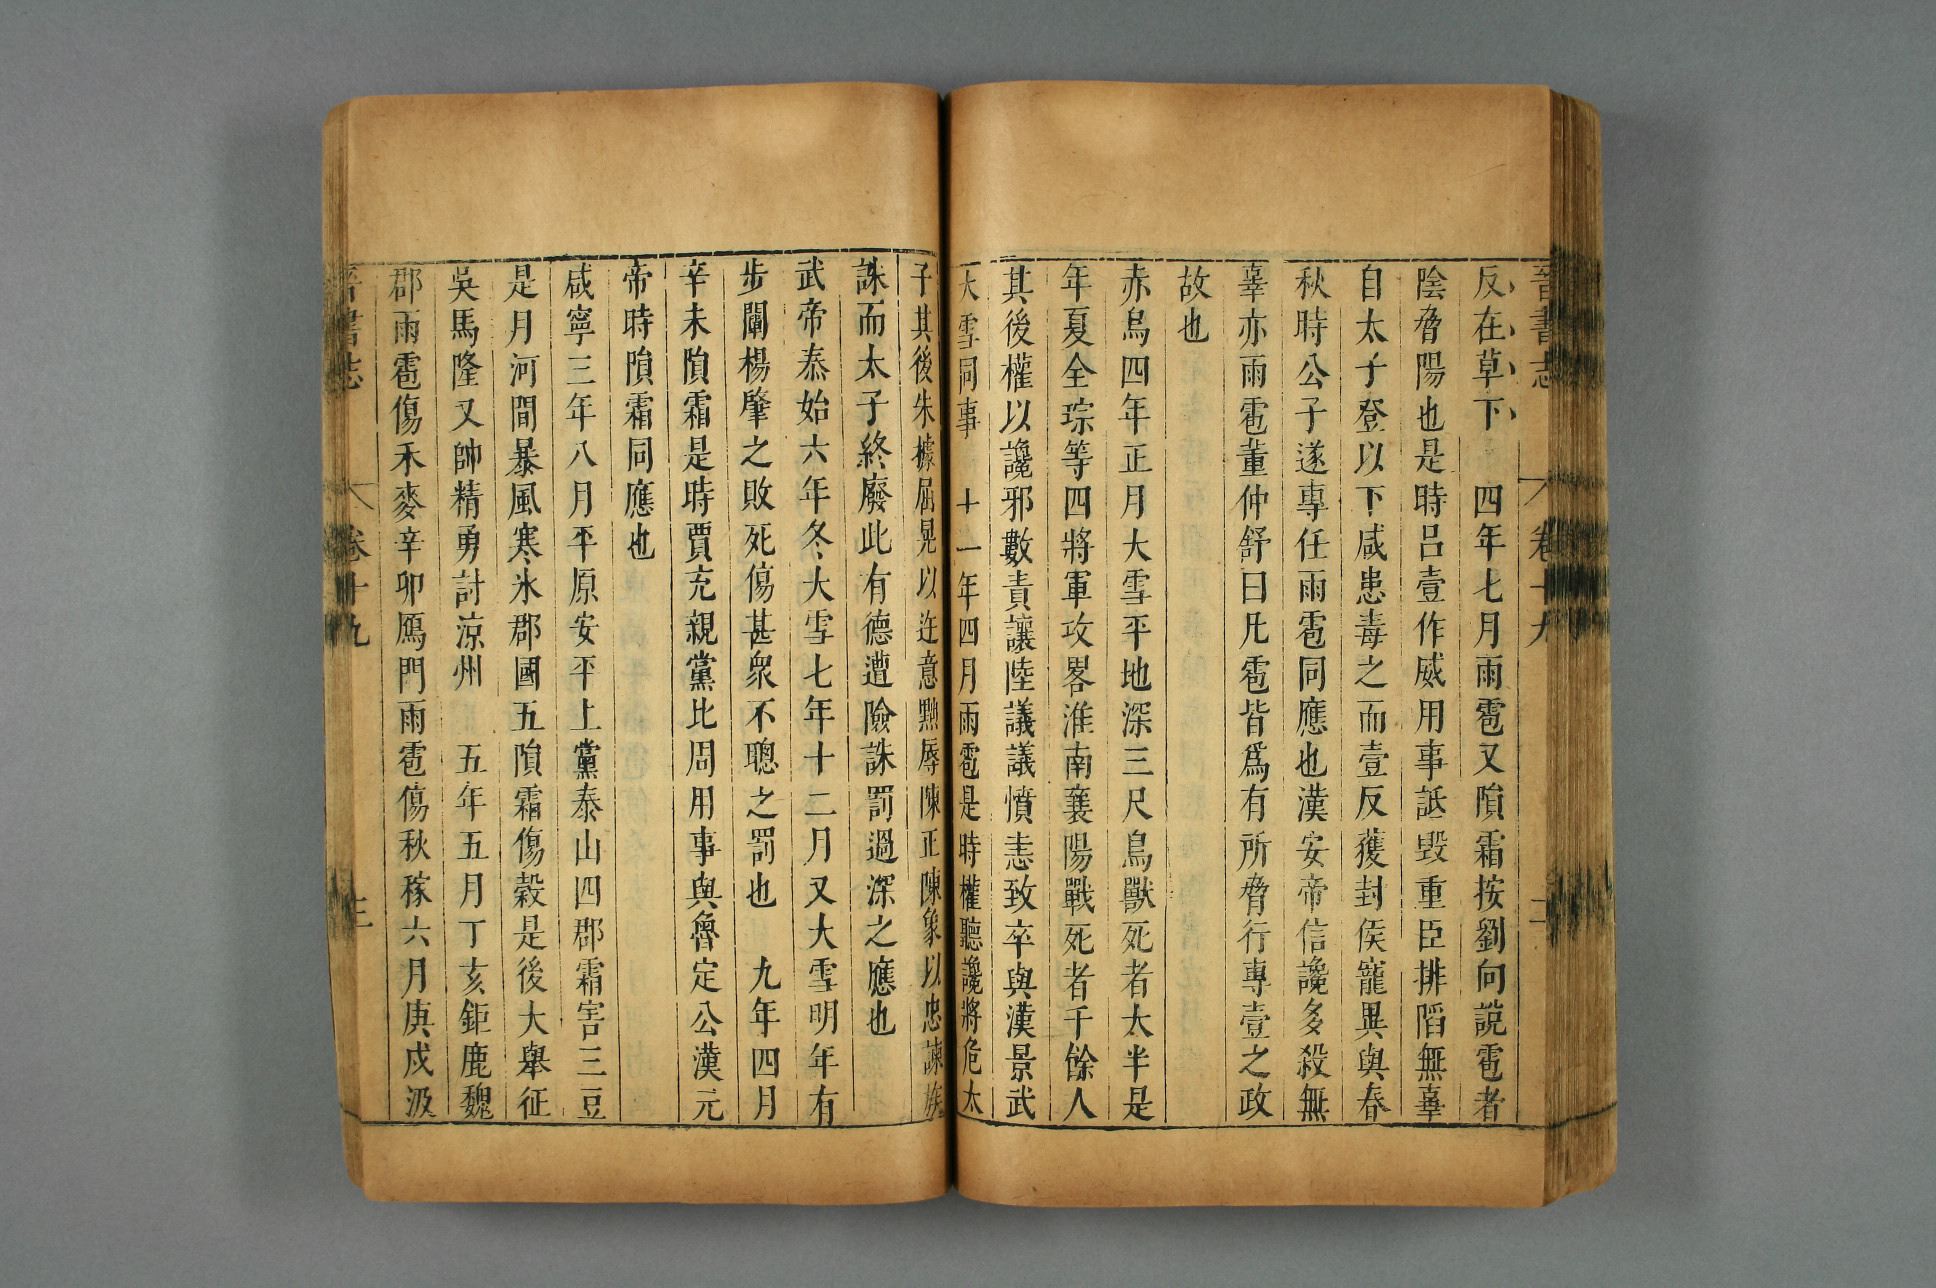 晉書志 卷十九 二
反在草下 四年七月雨雹又隕霜按劉向說雹者
陰脅陽也是時呂壹作威用事詆毀重臣排陷無辜
自太子登以下咸患毒之而壹反獲封侯寵異與春
秋時公子遂專任雨雹同應也漢安帝信讒多殺無
辜亦雨雹董仲舒曰凡雹皆爲有所脅行專壹之政
故也
赤烏四年正月大雪平地深三尺鳥獸死者太半是
年夏全琮等四將軍攻畧淮南襄陽戰死者千餘人
其後權以讒邪數責讓陸議議憤恚致卒與漢景武
大雪同事 十一年四月雨雹是時權聽讒將危太
子其後朱據屈晃以迕意黜辱陳正陳象以忠諫族
誅而太子終廢此有德遭險誅罰過深之應也
武帝泰始六年冬大雪七年十二月又大雪明年有
步闡楊肇之敗死傷甚衆不聰之罰也 九年四月
辛未隕霜是時賈充親黨比周用事與魯定公漢元
帝時隕霜同應也
咸寧三年八月平原安平上黨泰山四郡霜害三豆
是月河間暴風寒氷郡國五隕霜傷穀是後大舉征
吳馬隆又帥精勇討涼州 五年五月丁亥鉅鹿魏
郡雨雹傷禾麥辛卯鴈門雨雹傷秋稼六月庚戌汲
晉書志 卷十九 三